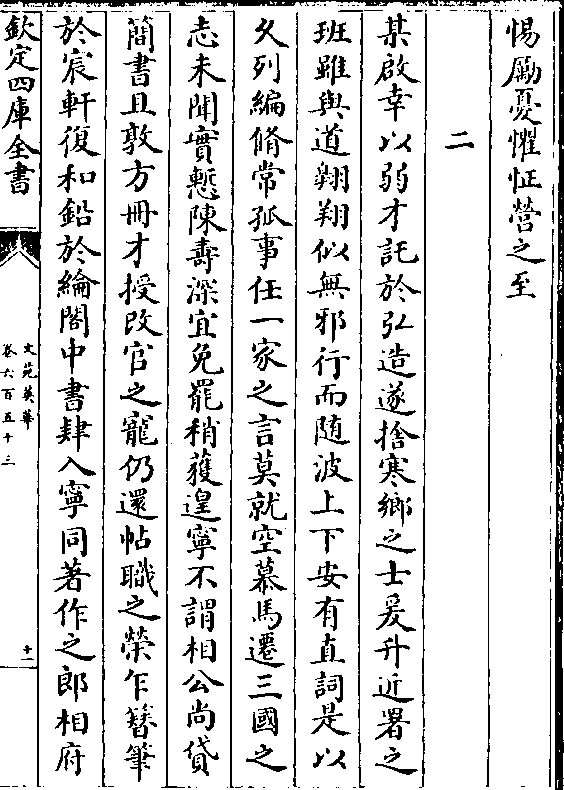 惕勵憂懼怔營之至
二
某啟幸以弱才託於弘造遂捨寒鄉之士爰升近署之
班雖與道翺翔似無邪行而隨波上下安有直詞是以
久列編脩常孤事任一家之言莫就空慕馬遷三國之
志未聞實慙陳壽深宜免罷稍獲遑寧不謂相公尚貸
簡書且敦方冊才授改官之寵仍還帖職之榮乍簪筆
於宸軒復和鉛於綸閣中書肆入寧同著作之郎相府
欽定四庫全書
文苑英華
卷六百五十三
十一